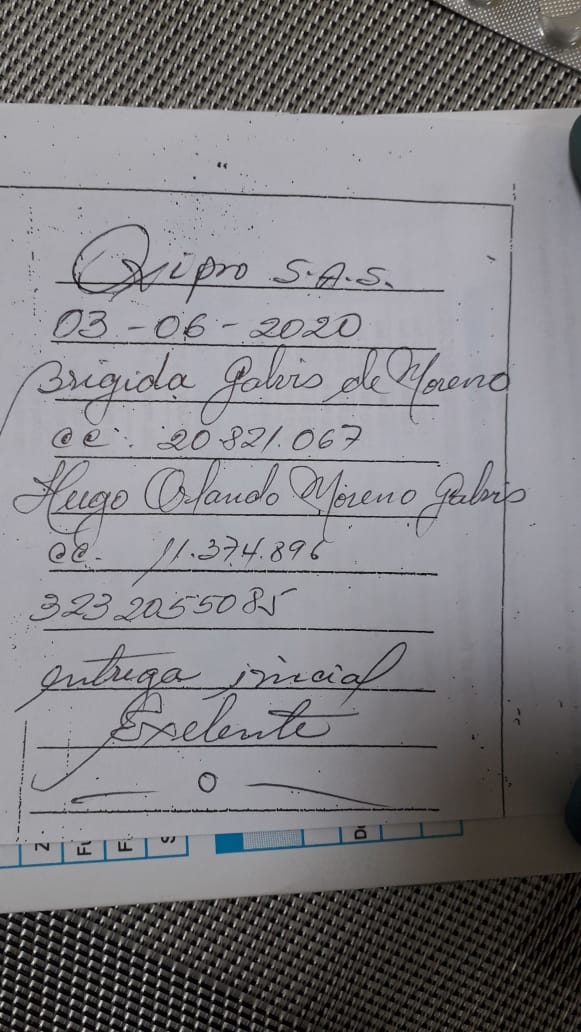 Oxipro S.A.S.
03-06-2020
Brigida Galvis de Moreno
cc. 20821.067
Hugo Orlando Moreno Galvis
cc. 11.374.896
3232055085
entrega inicial
Exelente